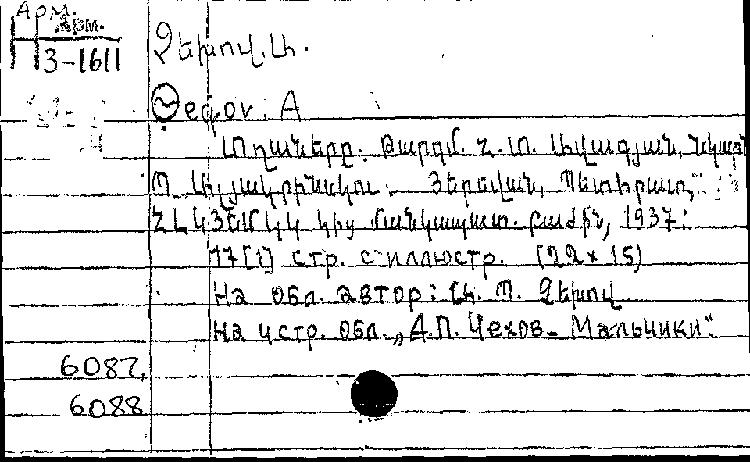 Арм.
Арм.
Н
3-1611
Չեխով. Ա.
Տղաները. Թարգմ. Հ. Տ. Ավագյան, նկար
Պ. Երևան, Պետհրատ,
ՀԼԿՅԵՄ ԿԿ կից մանկապատ. բաժին, 1937:
17[1] стр. с иллюстр. (22×15)
На обл. автор: Ա. Պ. Չեխով
На 4 стр. обл. „А.П. Чехов - Мальчики“.
6087,
6088